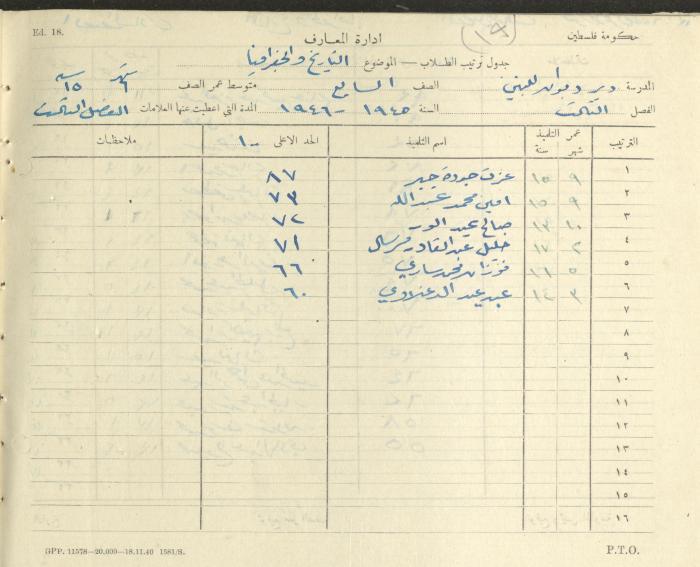 Ed. 18.
ادارة المعارف
حكومة فلسطين
١٧
جدول ترتيب الطلاب — الموضوع التاريخ والجغرافيا
المدرسة دير للبنين الصف السابع متوسط عمر الصف ٦ شهر ١٥ سنه
الفصل الثالث السنة ١٩٤٥ - ١٩٤٦ المدة التي اعطيت عنها العلامات الفصل الثالث
الترتيب عمر التلميذ شهر سنة اسم التلميذ الحد الاعلى ١٠٠ ملاحظات
١ ٩ ١٥ عزت جودة جبر ٨٧
٢ ٩ ١٥ امين محمد عبدالله ٧٣
٣ ١٠ ١٣ صالح عبد ٧٢
٤ ٢ ١٧ خليل عبد القادر ٧١
٥ ٥ ١٦ فوزان محمد ساري ٦٦
٦ ٣ ١٤ عبد ٦٠
٧
٨
٩
١٠
١١
١٢
١٣
١٤
١٥
١٦
GPP. 11578—20,000—18.11.40 1581/S.
P.T.O.